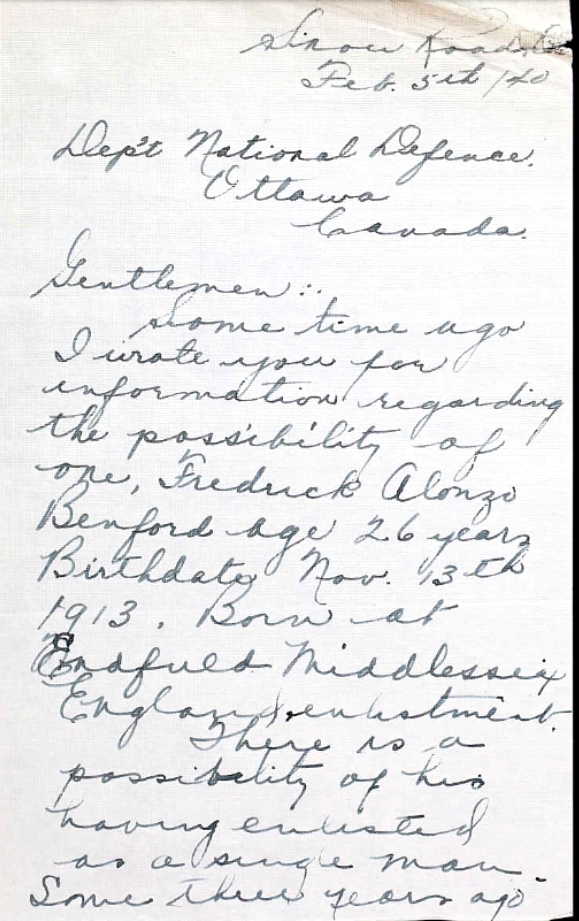 Road, 
Feb. 5th /40
Dep't National Defence.
Ottawa
Canada.
Gentlemen :.
Some time ago
I wrote you for
information regarding
the possibility of
one, Fredrick Alonzo
Benford age 26 years
Birthdate Nov. 13th
1913. Born at
Endfield Middlessex
England, enlistment.
There is a
possibility of his
having enlisted
as a single man.
Some three years ago